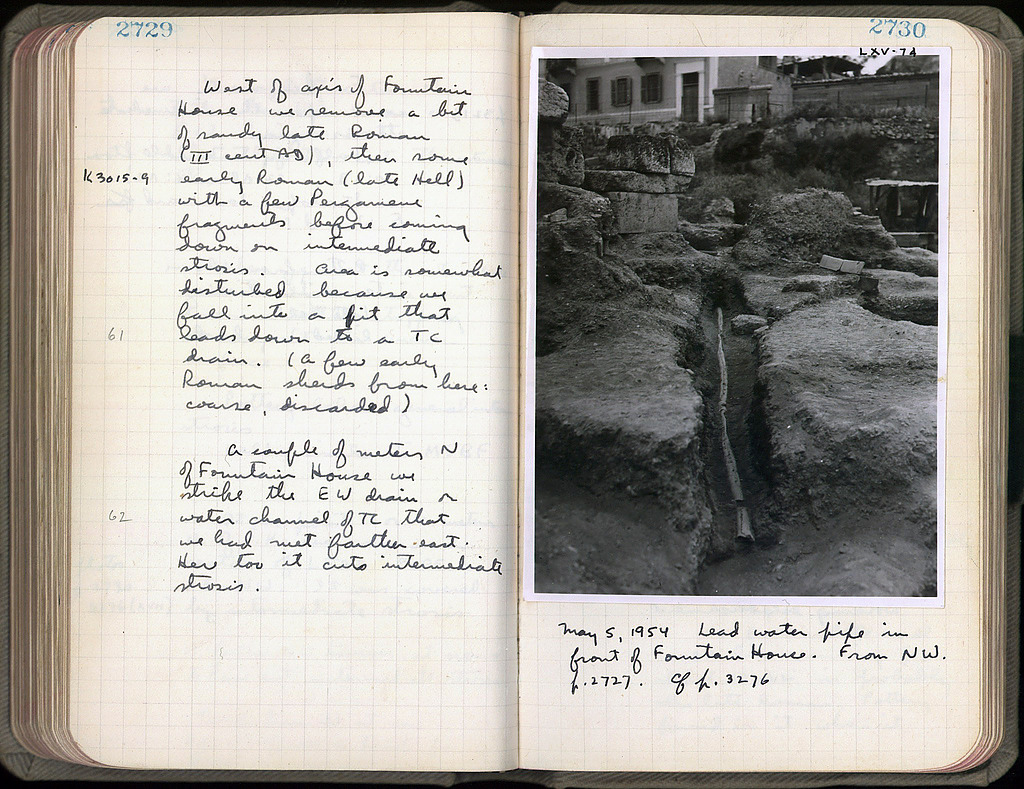 2729
West of axis of Fountain
House we remove a bit
of sandy late Roman
(III cent AD), then some
K 3015-9 early Roman (late Hell)
with a few Pergamene
fragments before coming
down on intermediate
strosis. Area is somewhat
disturbed because we
fall into a pit that
61 leads down to a TC
drain. (A few early
Roman sherds from here:
coarse, discarded)
A couple of meters N
of Fountain House we
strike the EW drain or
62 water channel of TC that
we had met farther east.
Here too it cuts intermediate
strosis.
2730
LXV-74
May 5, 1954 Lead water pipe in
front of Fountain House. From NW.
p. 2727. Cf p. 3276